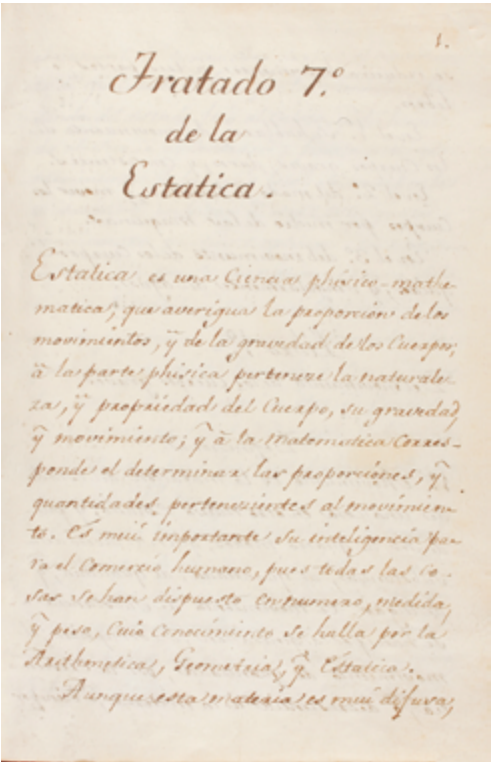 1.
Tratado 7.º
de la
Estatica.
Estatica es una Ciencia phisico-mathe-
matica, que averigua la proporcion de los
movimientos, ÿ de la gravedad de los Cuerpos;
â la parte phisica perteneze la naturale-
za, ÿ propriedad del Cuerpo, su gravedad,
ÿ movimiento; ÿ â la Matematica corres-
ponde el determinar las proporciónes, ÿ
quantidades pertenezientes al movimien-
to. Es muÿ importante su inteligencia pa-
ra el Comercio humano, pues todas las co-
sas se han dispuesto en numero, medida,
ÿ peso, Cuio Conocimiento se halla por la
Arithmetica, Geometria, ÿ Estatica.
Aunque esta materia es muÿ difusa,